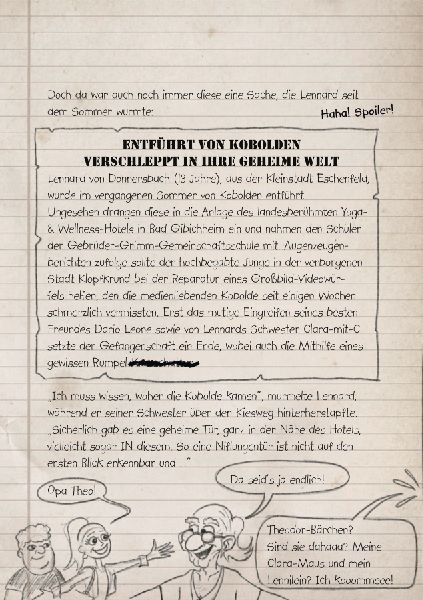 Doch da war auch noch immer diese eine Sache, die Lennard seit
dem Sommer wurmte:
Haha! Spoiler!
ENTFÜHRT VON KOBOLDEN
VERSCHLEPPT IN IHRE GEHEIME WELT
Lennard von Donnersbach (13 Jahre), aus der Kleinstadt Eschenfeld,
wurde im vergangenen Sommer von Kobolden entführt.
Ungesehen drangen diese in die Anlage des landesberühmten Yoga-
& Wellness-Hotels in Bad Gibichheim ein und nahmen den Schüler
der Gebrüder-Grimm-Gemeinschaftsschule mit. Augenzeugen-
berichten zufolge sollte der hochbegabte Junge in der verborgenen
Stadt Klopfkrund bei der Reparatur eines Großbild-Videowür-
fels helfen, den die medienliebenden Kobolde seit einigen Wochen
schmerzlich vermissten. Erst das mutige Eingreifen seines besten
Freundes Dario Leone sowie von Lennards Schwester Clara-mit-C
setzte der Gefangenschaft ein Ende, wobei auch die Mithilfe eines
gewissen Rumpel
„Ich muss wissen, woher die Kobolde kamen“, murmelte Lennard,
während er seiner Schwester über den Kiesweg hinterherstapfte.
„Sicherlich gab es eine geheime Tür, ganz in der Nähe des Hotels,
vielleicht sogar IN diesem. So eine Niflungentür ist nicht auf den
ersten Blick erkennbar und ...“
Da seid's ja endlich!
Opa Theo!
Theodor-Bärchen?
Sind sie dahaaa? Meine
Clara-Maus und mein
Lennilein? Ich kooommeee!